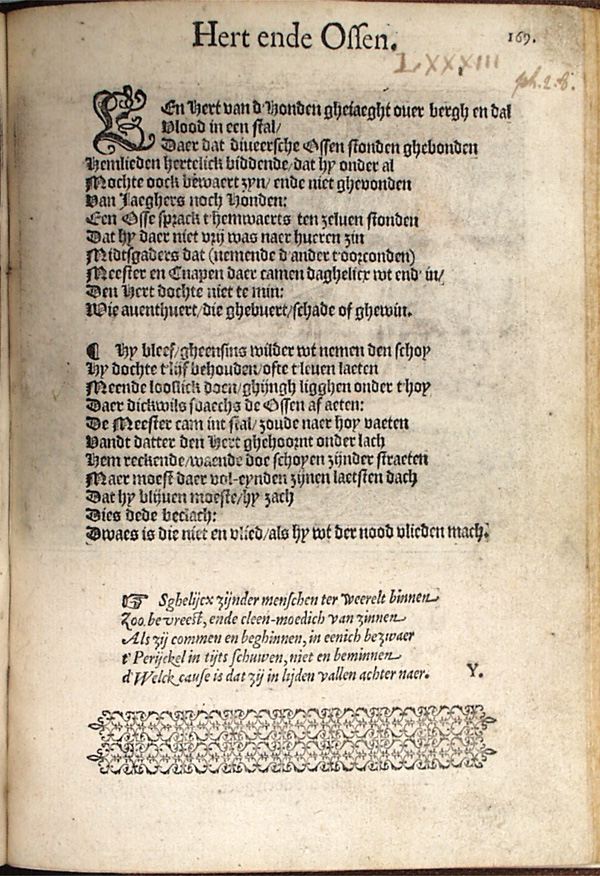 Hert ende Ossen. 169.
LXXXIII
Een Hert van d'Honden gheiaeght ouer bergh en dal
Vlood in een stal/
Daer dat diueersche Ossen stonden ghebonden
Hemlieden hertelick biddende/dat hy onder al
Mochte oock bewaert zyn/ende niet ghevonden
Van Jaeghers noch Honden:
Een Osse sprack t'hemwaerts ten zeluen stonden
Dat hy daer niet vrij was naer hueren zin
Midtsgaders dat (nemende d'ander t'oorconden)
Meester en Cnapen daer camen daghelicx wt end' in/
Den Hert dochte niet te min:
Wie auenthuert/die ghebuert/schade of ghewin.
¶ Hy bleef/gheensins wilder wt nemen den schoy
Hy dochte t'lijf behouden/ofte t'leuen laeten
Meende looslick doen/ghijngh ligghen onder t'hoy
Daer dickwils sdaechs de Ossen af aeten:
De Meester cam int stal/zoude naer hoy vaeten
Vandt datter den Hert ghehoornt onder lach
Hem reckende/waende doe schoyen zijnder straeten
Maer moest daer vol-eynden zijnen laetsten dach
Dat hy blijuen moeste/hy zach
Dies dede beclach:
Dwaes is die niet en vlied/als hy wt der nood vlieden mach.
☞ Sghelijcx zijnder menschen ter weerelt binnen
Zoo bevreest, ende cleen-moedich van zinnen
Als zij commen en beghinnen, in eenich bezwaer
t'Perijckel in tijts schuwen, niet en beminnen
d'Welck cause is dat zij in lijden vallen achter naer. Y.